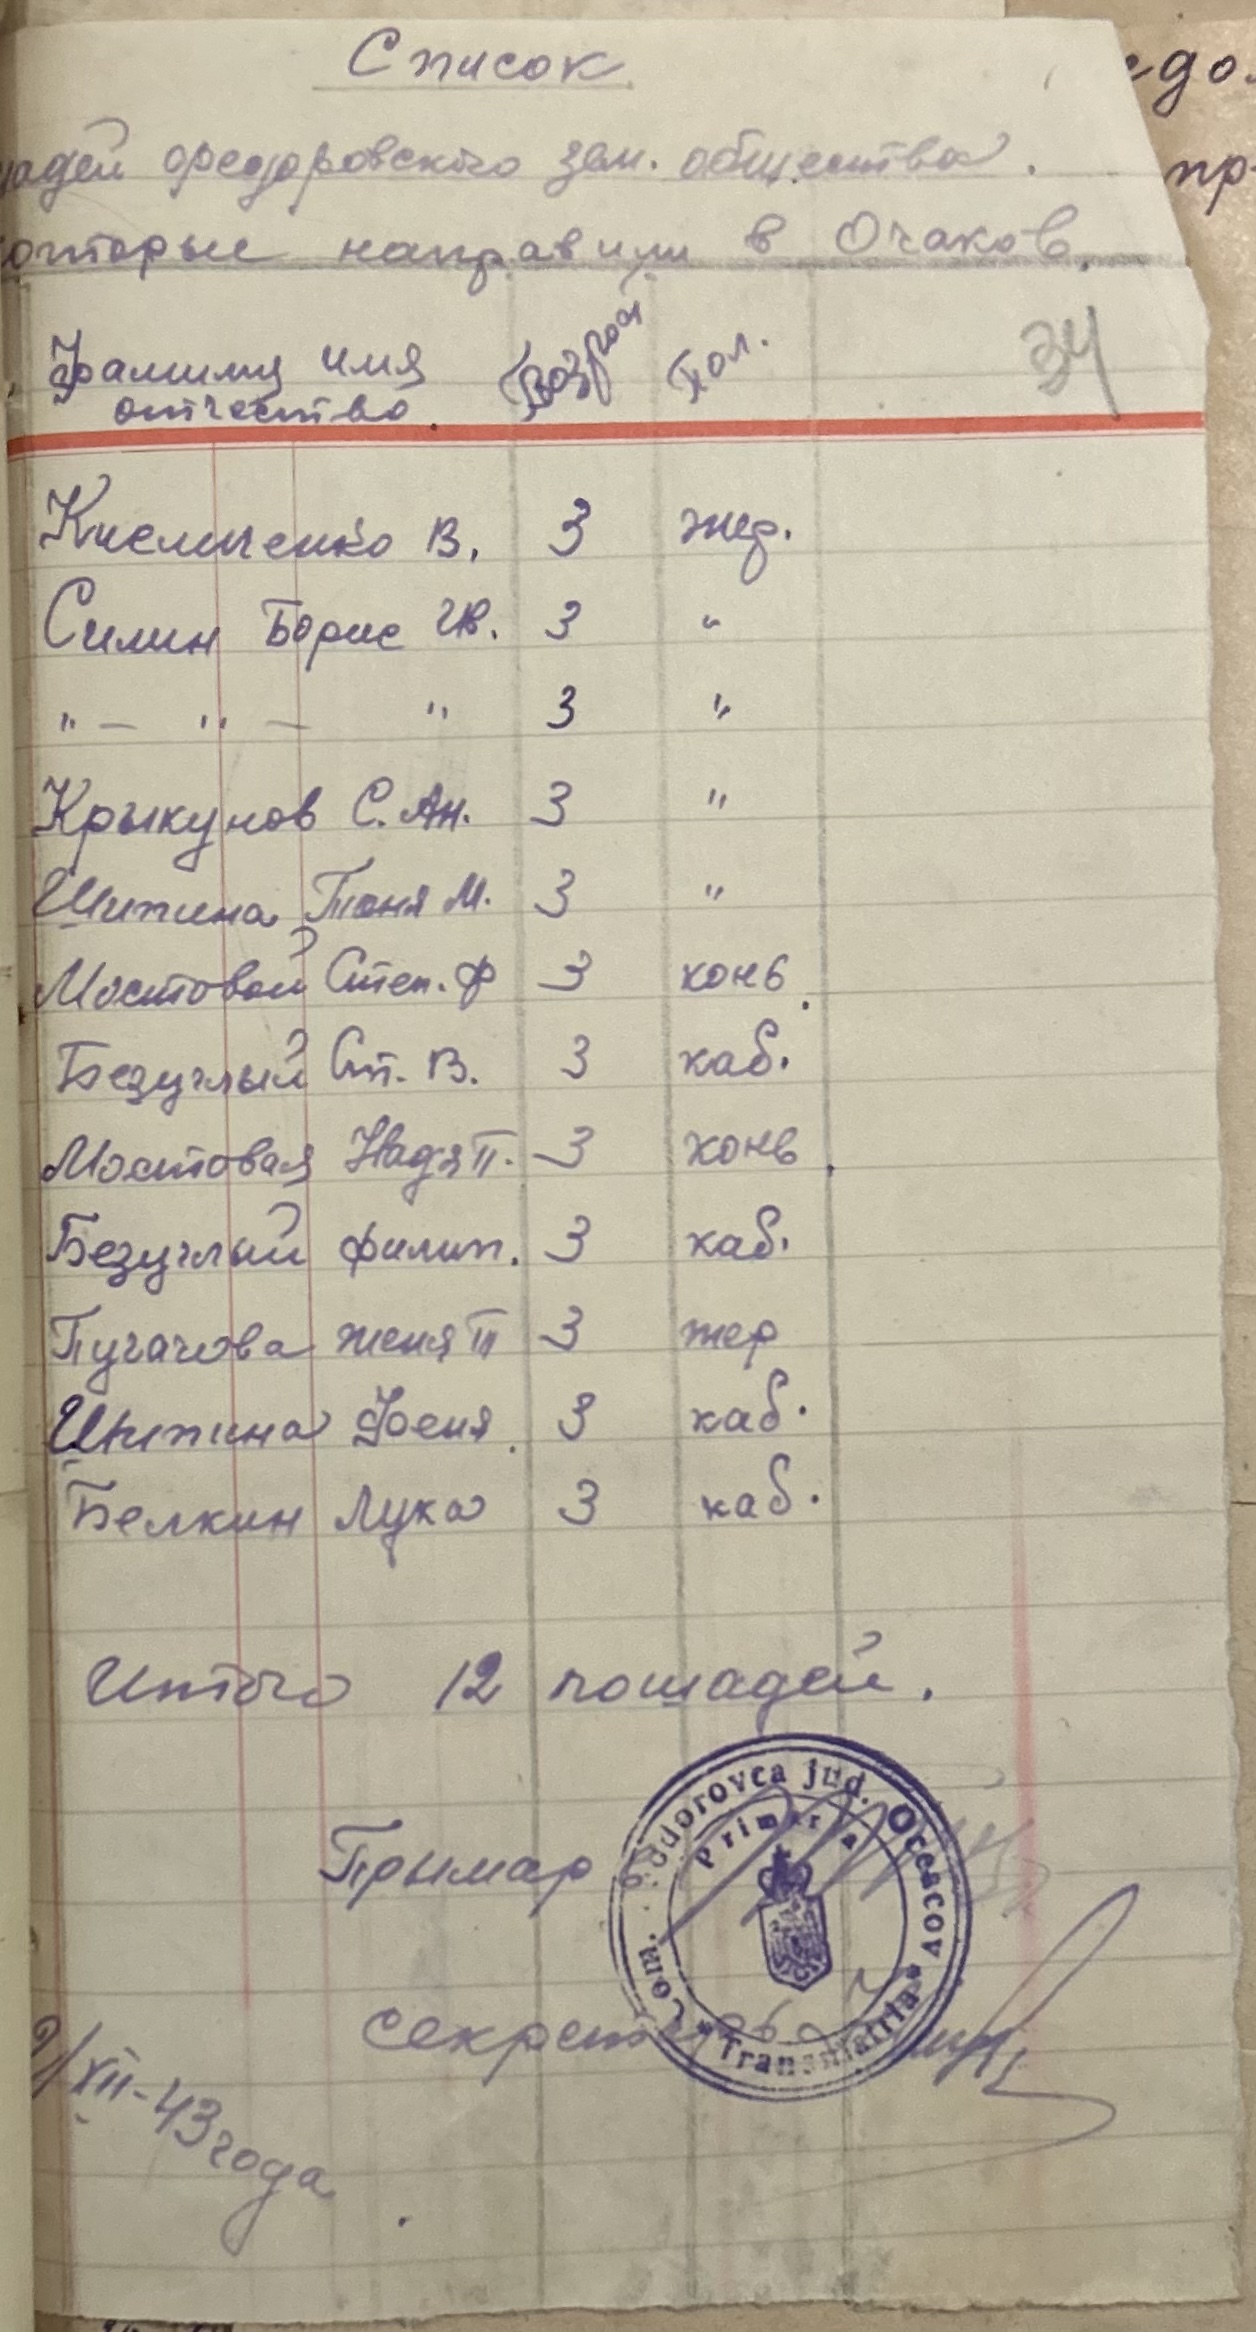 Список
шадей федоровского зем. общества.
которые направили в Очаков.
34
Фамилия имя отчество. Возраст Пол.
Кисличенко В. 3 жер.
Силин Борис Ив. 3 "
" — " — " 3 "
Крыкунов С. Ан. 3 "
Шипина Таня М. 3 "
Мостовой Степ. Ф 3 конь.
Безуглый Сп. В. 3 каб.
Мостовая Надя П. 3 конь.
Безуглый Филип. 3 каб.
Пугачова Женя П 3 жер
Шипина Феня. 3 каб.
Белкин Лука 3 каб.
Итого 12 лошадей.
Прымар
Com. Feodorovca jud. Oceacov * Transnistria *
Primaria
секретарь
2/XII-43 года.